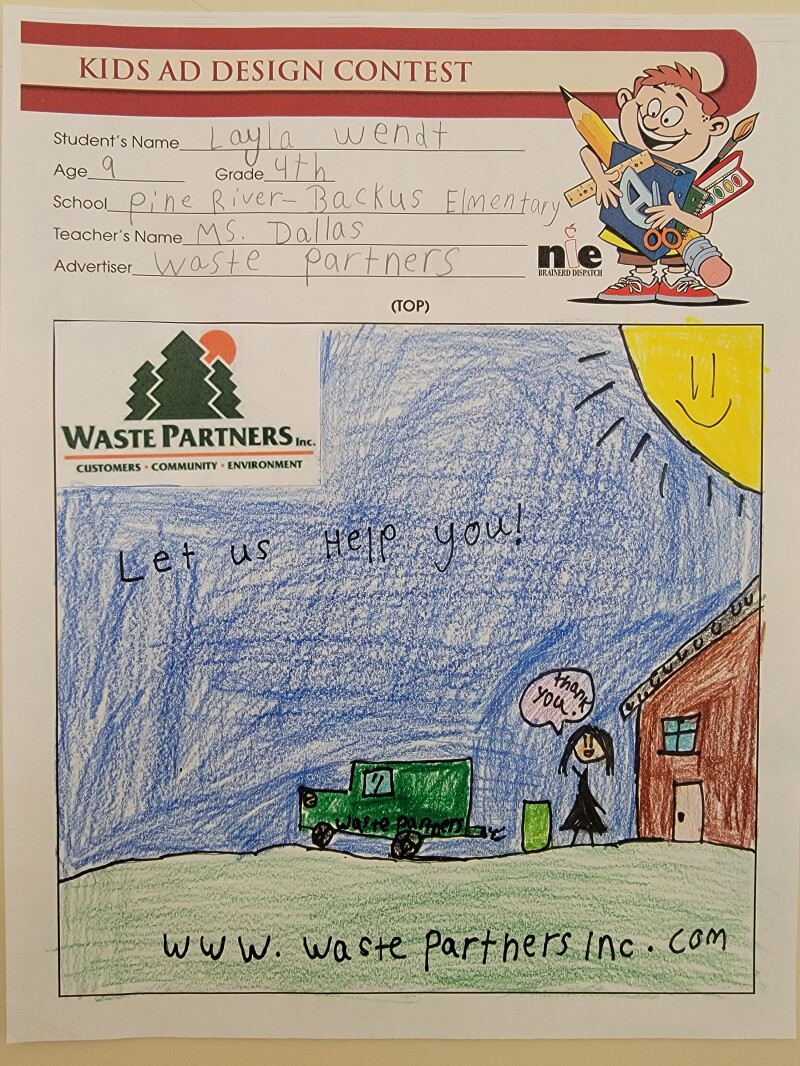 KIDS AD DESIGN CONTEST
Student's Name Layla Wendt
Age 9 Grade 4th
School Pine River-Backus Elmentary
Teacher's Name Ms. Dallas
Advertiser Waste partners
nie
BRAINERD DISPATCH
(TOP)
WASTE PARTNERS Inc.
CUSTOMERS · COMMUNITY · ENVIRONMENT
Let us Help you!
thank
you.
waste partners
www.wastepartnersinc.com